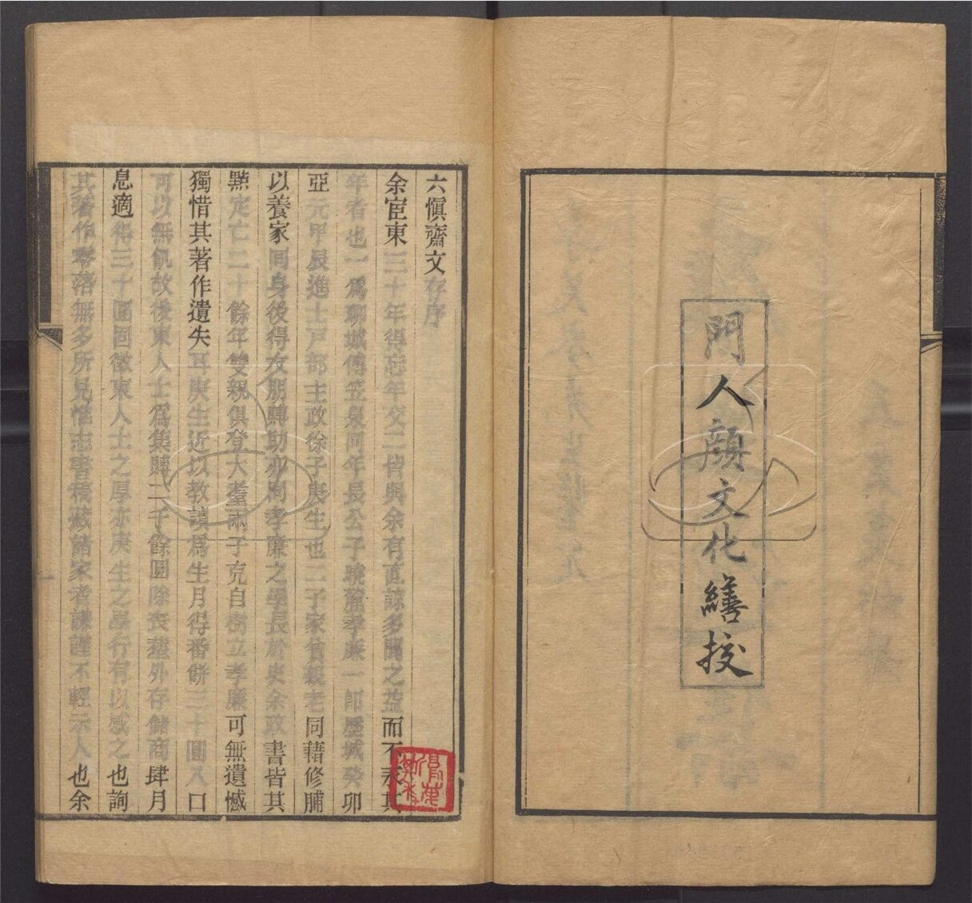 門人顔文化繕校
六愼齋文存序
余宦東三十年得忘年交二皆與余有直諒多聞之益而不永其
年者也一爲聊城傅笠泉同年長公子曉麓孝廉一卽歷城癸卯
亞元甲辰進士戸部主政徐子庚生也二子家貧親老同藉修脯
以養家同身後得友朋賻助亦同孝廉之學長於史余政書皆其
點定亡二十餘年雙親俱登大耋兩子克自樹立孝廉可無遺憾
獨惜其著作遺失耳庚生近以教讀爲生月得番餅三十圓八口
可以無飢故後東人士爲集賻二千餘圓除喪葬外存儲商肆月
息適得三十圓固徵東人士之厚亦庚生之學行有以感之也詢
其著作零落無多所見惟志書稿藏諸家者謙謹不輕示人也余